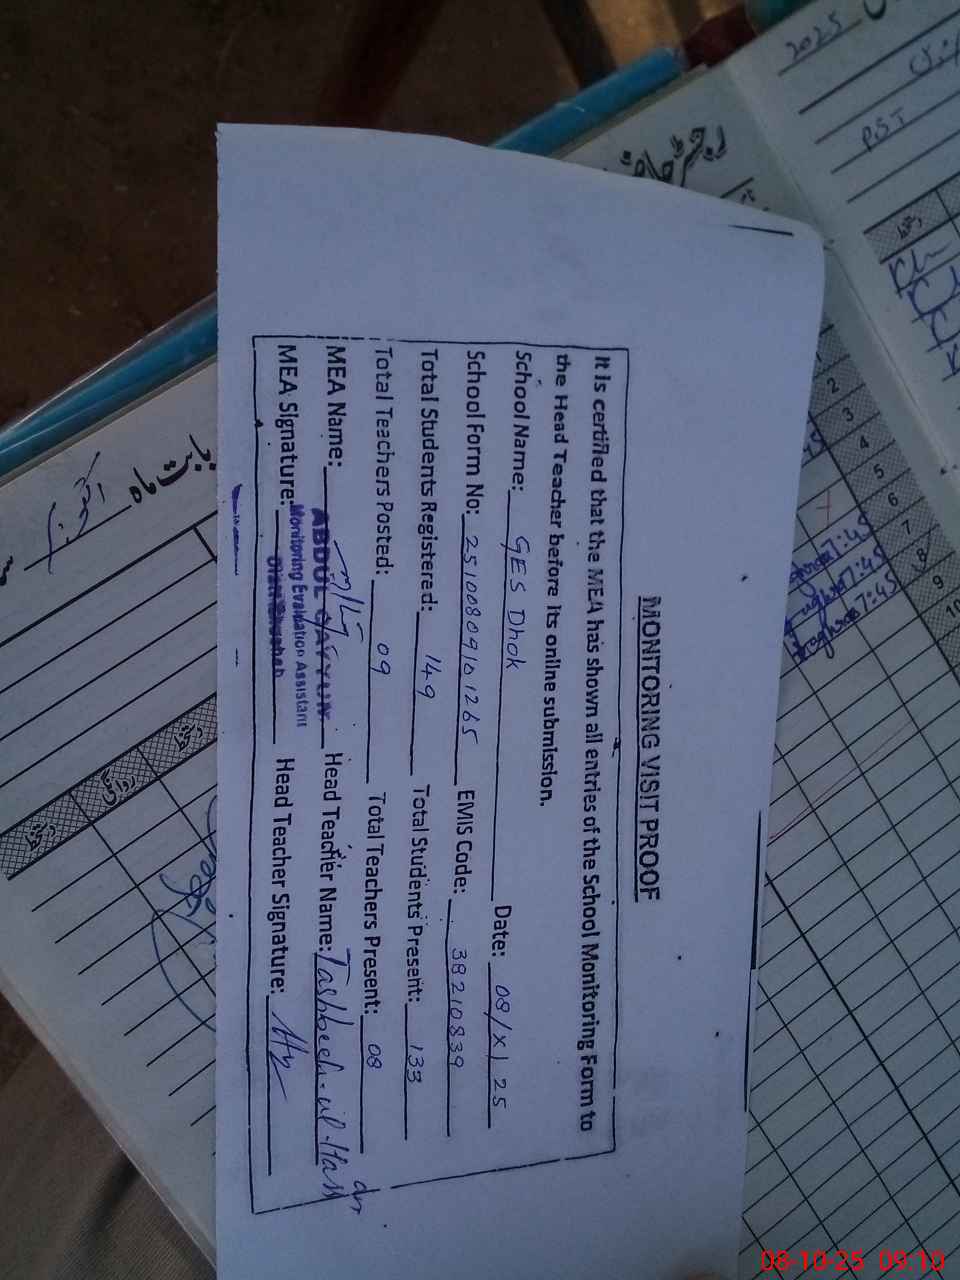 MONITORING VISIT PROOF
It is certified that the MEA has shown all entries of the School Monitoring Form to
the Head Teacher before its online submission.
School Name: GES Dhok Date: 08/X/25
School Form No: 25100809101265 EMIS Code: 38210839
Total Students Registered: 149 Total Students Present: 133
Total Teachers Posted: 09 Total Teachers Present: 08
MEA Name: ABDUL QAYYUM Head Teacher Name: Tashbeeh-ul-Hassan
Monitoring Evaluation Assistant
MEA Signature: Head Teacher Signature:
2025
PST
رجسٹر حاضری
دستخط
2
3
4
5
6
7
8
9
10
7:45
7:45
7:45
بابت ماہ اکتوبر
دستخط
روانگی
دستخط
08-10-25 09:10